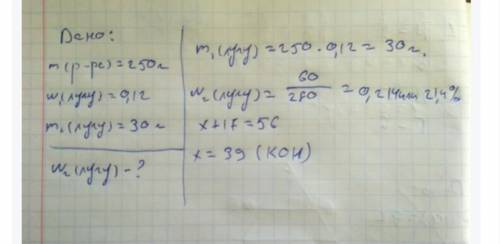 Дано:
m(р-ре)=250г
w₁(лугу)=0,12
m₁(лугу)=30г
w₂(лугу)-?
m₁(лугу)=250·0,12=30г.
w₂(лугу)=60/280=0,214или 21,4%
x+17=56
x=39(KOH)